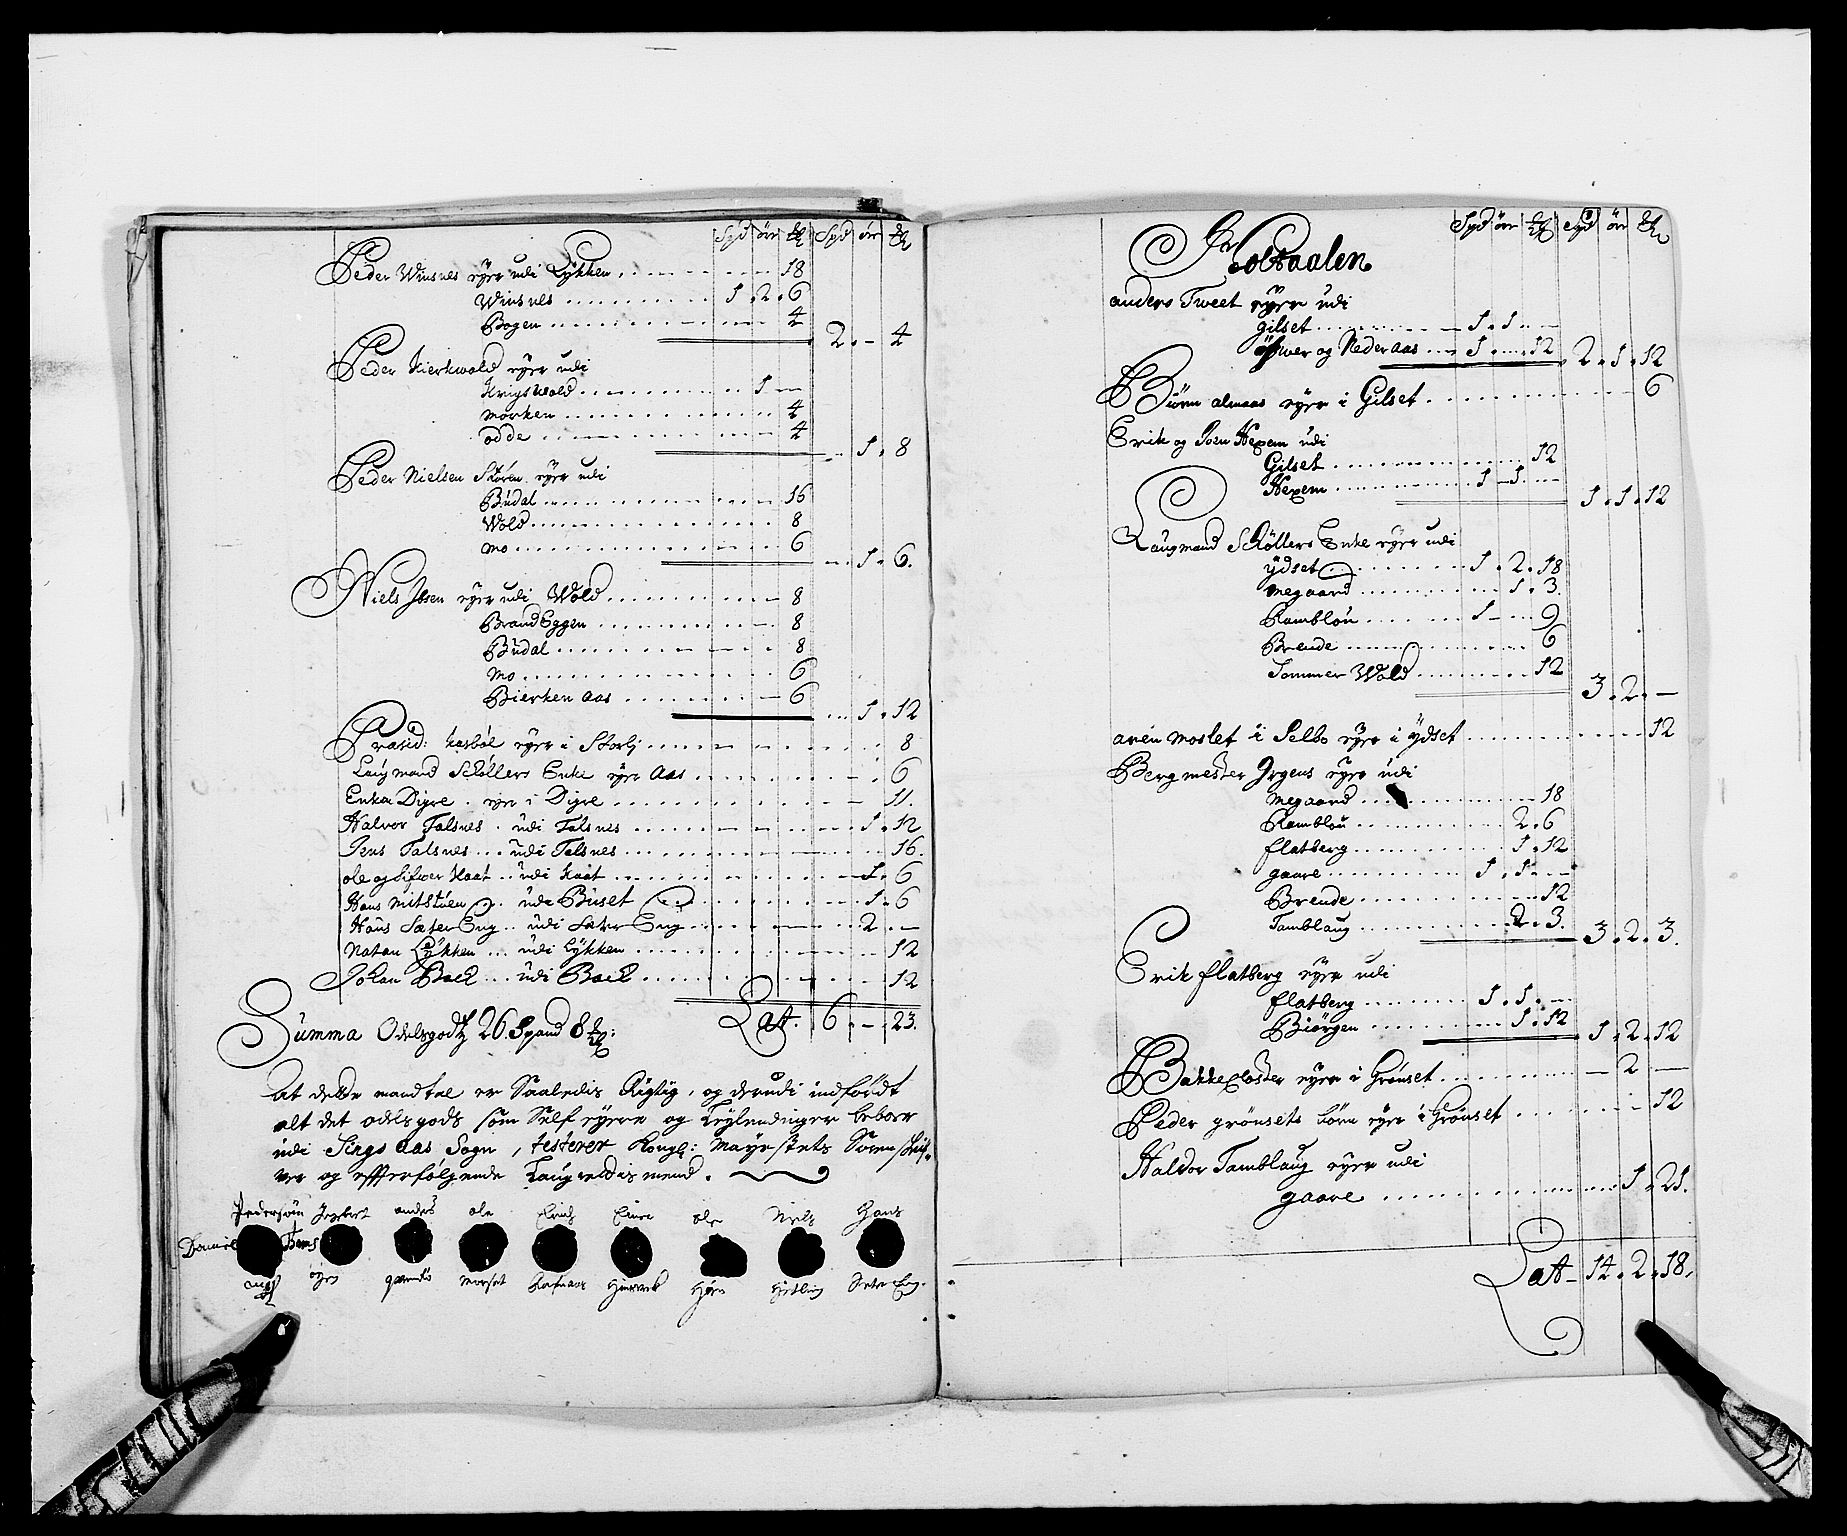 Spd ör mkl Spd ör mkl
Peder Winsnes eyer udi Lykken 18
Winsnes 1 . 2 . 6
Bogen 4
2 . - 4
Peder Kierkwold eyer udi
Krigswold 1 -
Morken 4
odde 4
1 . 8
Peder Nielsen Stören eyer udi
Budal 16
Wold 8
Mo 6
1 . 6.
Niels Ibsen eyer udi Wold 8
Brand Eggen 8
Budal 8
Mo 6
Bierken Aas 6
1 . 12
Præsid: Kasböl eyer i Storlj 8
Laugmand Schöllers Enke eyer Aas 6
Enken Digre . eyer i Digre 11.
Halvor Talsnes . udi Talsnes 1 . 12
Jens Talsnes ... udi Talsnes 16.
ole og Sifwer Kaat .. udi Kaat 1 . 6
Hans Mitstuen ... udi Buset 1 . 6
Hans Sæter Eng .. udi Sæter Eng 2 . -
Natan Lykken ... udi Lykken 12
Johan Back ... udi Back 12
Lat. 6 . - . 23.
Summa Odelsgodtz 26 Spand 8 mkl:
At dette mandtal er Saaledis Rigtig, og derudi indfördt
alt det odelsgods som Self eyere og Leylendinger beboer
udi Sings Aas Sogn, testerer Kongl: Mayestets Sorenschrif-
ver og effterfölgende Laugrettismend.
Pedersön Ingebret anders ole Erich Einer ole Niels Hans
Daniel Jens
öyen Morset Hiervek Sæter Eng.
Spd ör mkl Spd ör mkl
For Holtaalen
anders Tweet eyer udi
Gilset 1 . 1 . -
Öfwer og Neder Aas 1 . - . 12
2 . 1 . 12
Biörn almaas eyer i Gilset 6
Erik og Joen Hexem udi
Gilset 12
Hexem 1 - 1 . -
1 . 1 . 12
Laugmand Schöllers Enke eyer udi
ydset 1 . 2 . 18
Megaard 1 . 3.
Ramblou 1 - 9
Brende 6
Sommer Wold 12
3 . 2 . -
aren Moslet i Selbo eyer i ydset 12
Bergmester Irgens eyer udi
Megaard 18
Ramblou 2 . 6
flatberg 1 . 12
gaare 1 . 1 . -
Brende 12
Tamblaug 2 . 3.
3 . 2 . 3.
Erik flatberg eyer udi
flatberg 1 . 1 . -
Biörgen 1 . 12
1 . 2 . 12
Bakke Closter eyer i Grönset - 2 -
Peder grönsets börn eyer i Grönset 12
Haldor Tamblaug eyer udi
gaare 1 . 21.
Lat 14 . 2 . 18.